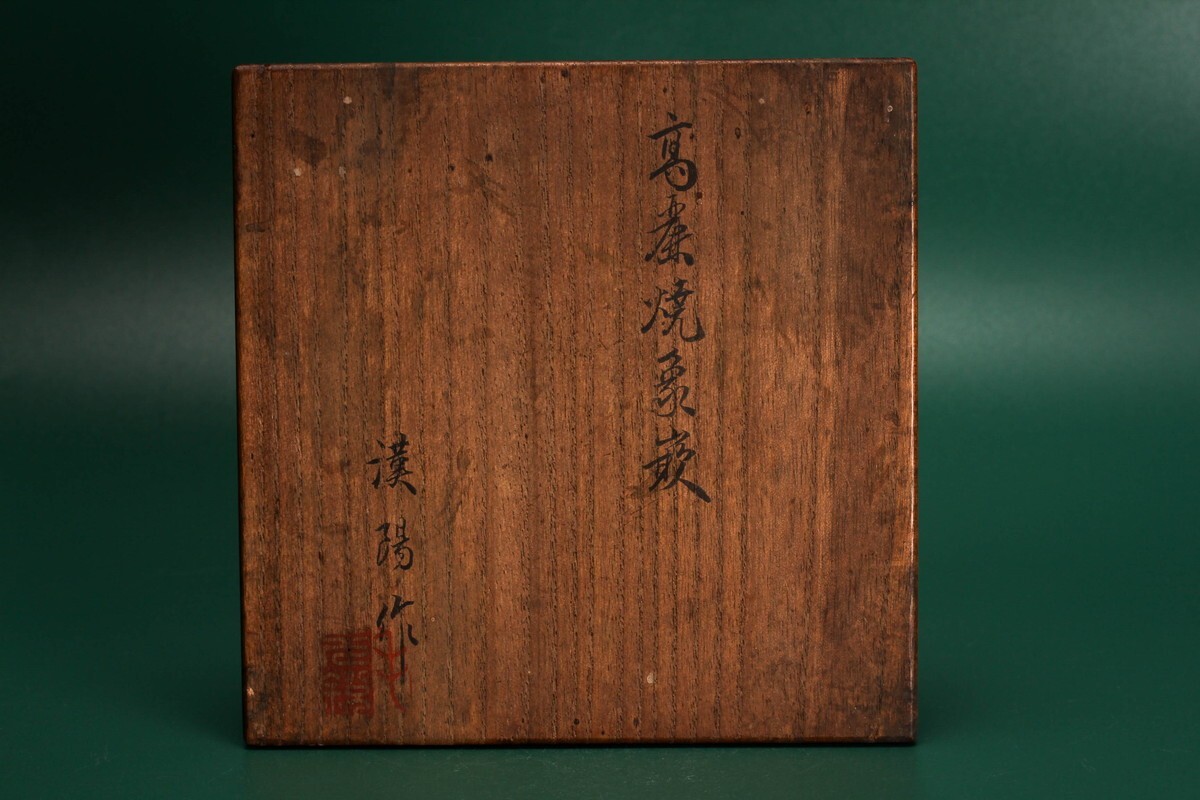 高麗焼象嵌
漢陽作